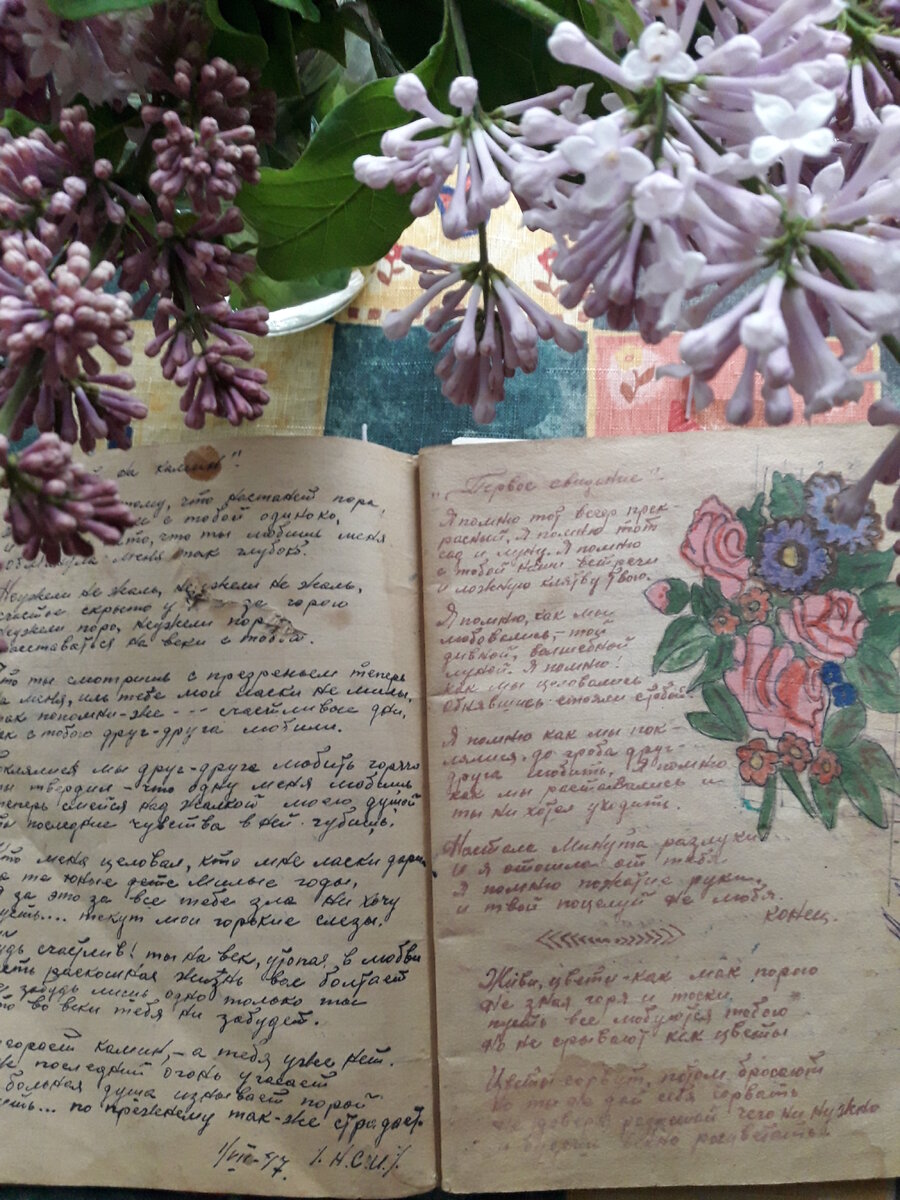 на камин".
тому, что настанет пора,
с тобой одиноко,
что ты любиш меня
обманула меня так глубоко.
Неужели не жаль, неужели не жаль,
счастье скрыто у за горою
неужели пора, неужели пор
расставаться на веки с тобой.
Что ты смотришь с презреньем теперь
на меня, иль тебе мои ласки не милы,
так попомни-же -- счастливые дни,
как с тобою друг-друга любили.
клялися мы друг-друга любить горячо
ты твердил - что одну меня любишь
теперь смеёшся над жалкой моею душой
ты последние чувства в ней губишь.
Кто меня целовал, кто мне ласки дарил
за те юные дете милые годы,
Я за это за все тебе зла ни хочу
пусть.... текут мои горькие слезы.
будь счастлив! ты на век, утопая в любви
есть раскошная жизнь вас болтает
не забудь лишь одно только ты
что во веки тебя ни забудет.
догорает камин, - а тебя уже нет.
последний огонь угасает
больная душа изнывает порой
пусть... по прежнему так-же страдает.
1/VIII-47. /.Н.С.И./.
"Первое свидание".
Я помню тот вечер прек-
расный, Я помню тот
сад и луну. Я помню
с тобой наши встречи
и ложную клятву твою.
Я помню, как мы
любовались,- той
дивной, волшебной
луной. Я помню!
как мы целовались
обнявшись стояли с тобой.
Я помню как мы пок-
лялись, до гроба друг-
друга любить, Я помню
как мы расставались и
ты ни хотел уходить.
Настала минута разлуки
и я отошла от тебя
Я помню пожатие руки,
и твой поцелуй не любя.
конец.
Живи, цвети - как мак порою
не зная горя и тоски
пусть все любуются тобою
но не срывают как цветы
Цветы сорвут, потом бросают
но ты не дай себя сорвать
чего ни нужно